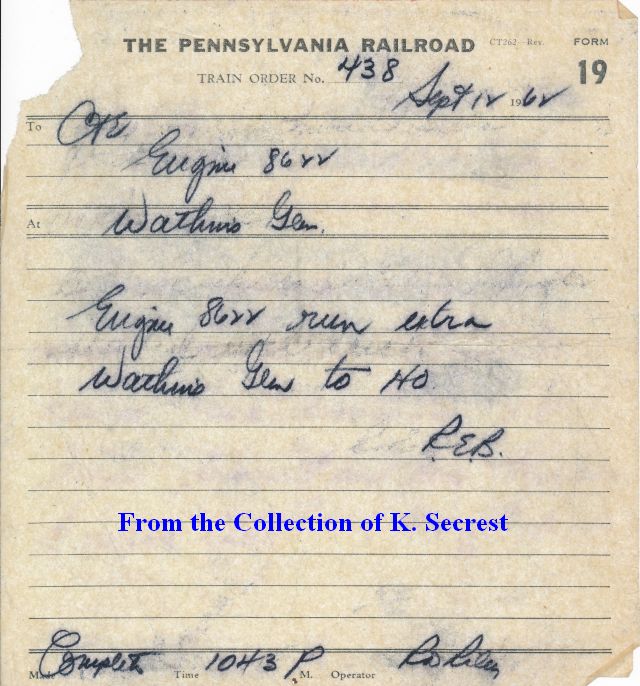 THE PENNSYLVANIA RAILROAD CT262—Rev. FORM
TRAIN ORDER No. 438 19
Sept 12 1962
To C&E
Engine 8622
At Watkins Glen.
Engine 8622 run extra
Watkins Glen to HO
R.E.B.
From the Collection of K. Secrest
Made Complete Time 1043 P M. Operator